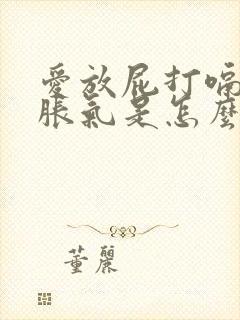 愛放屁打嗝
脹氣是怎麼
董麗